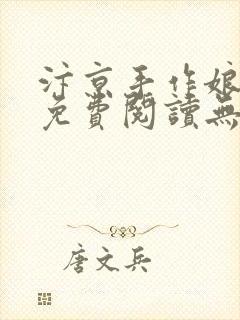 汴京手作娘
免費閱讀無
唐文兵